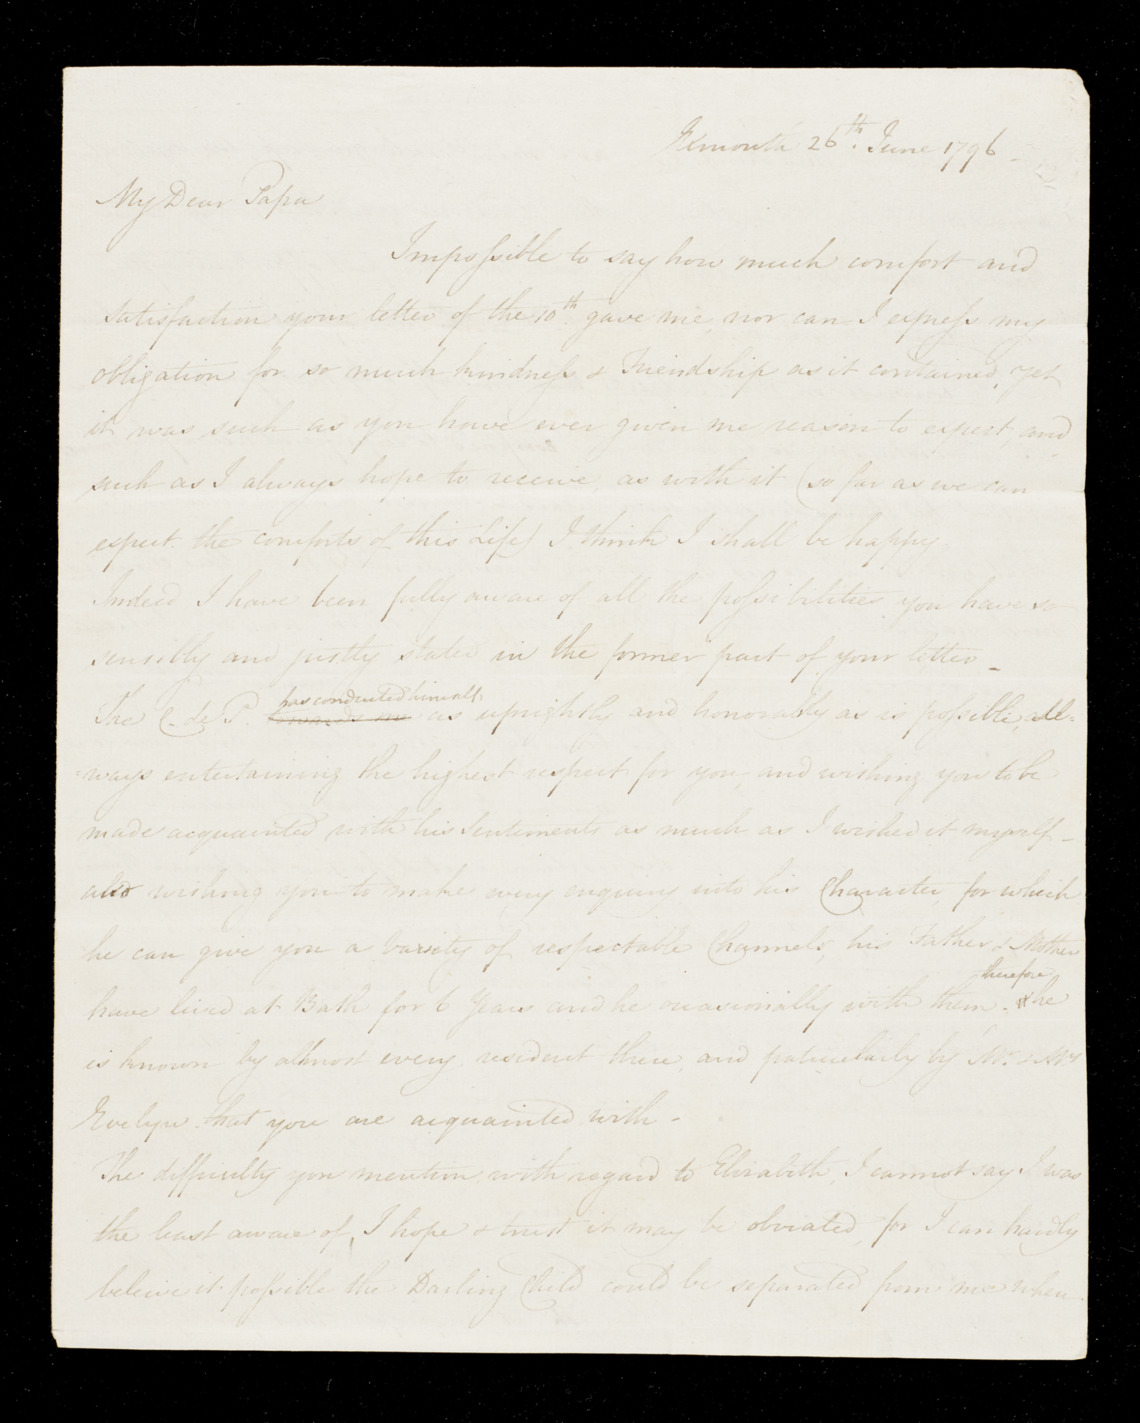 Exmouth 26th. June 1796 -
My Dear Papa
Impossible to say how much comfort and
satisfaction your letter of the 10th. gave me, nor can I express my
obligation for so much kindness & Friendship as it contained, yet
it was such as you have ever given me reason to expect, and
such as I always hope to receive, as with it (so far as we can
expect the comforts of this Life) I think I shall be happy.
Indeed I have been fully aware of all the possibilities you have so
sensibly and justly stated in the former part of your letter -
The C. de P. towards me has conducted himself as uprightly and honorably as is possible, all-
-ways entertaining the highest respect for you, and wishing you to be
made acquainted with his Sentiments as much as I wished it myself -
also wishing you to make every enquiry into his Character, for which
he can give you a variety of respectable Channels, his Father & Mother
have lived at Bath for 6 Years and he occasionally with them. therefore he
is known by allmost every resident there, and paticularly by Mr. & Mrs
Evelyn that you are acquainted with -
The difficulty you mention with regard to Elizabeth, I cannot say I was
the least aware of, I hope & trust it may be obviated, for I can hardly
beleive it possible the Darling Child could be separated from me when